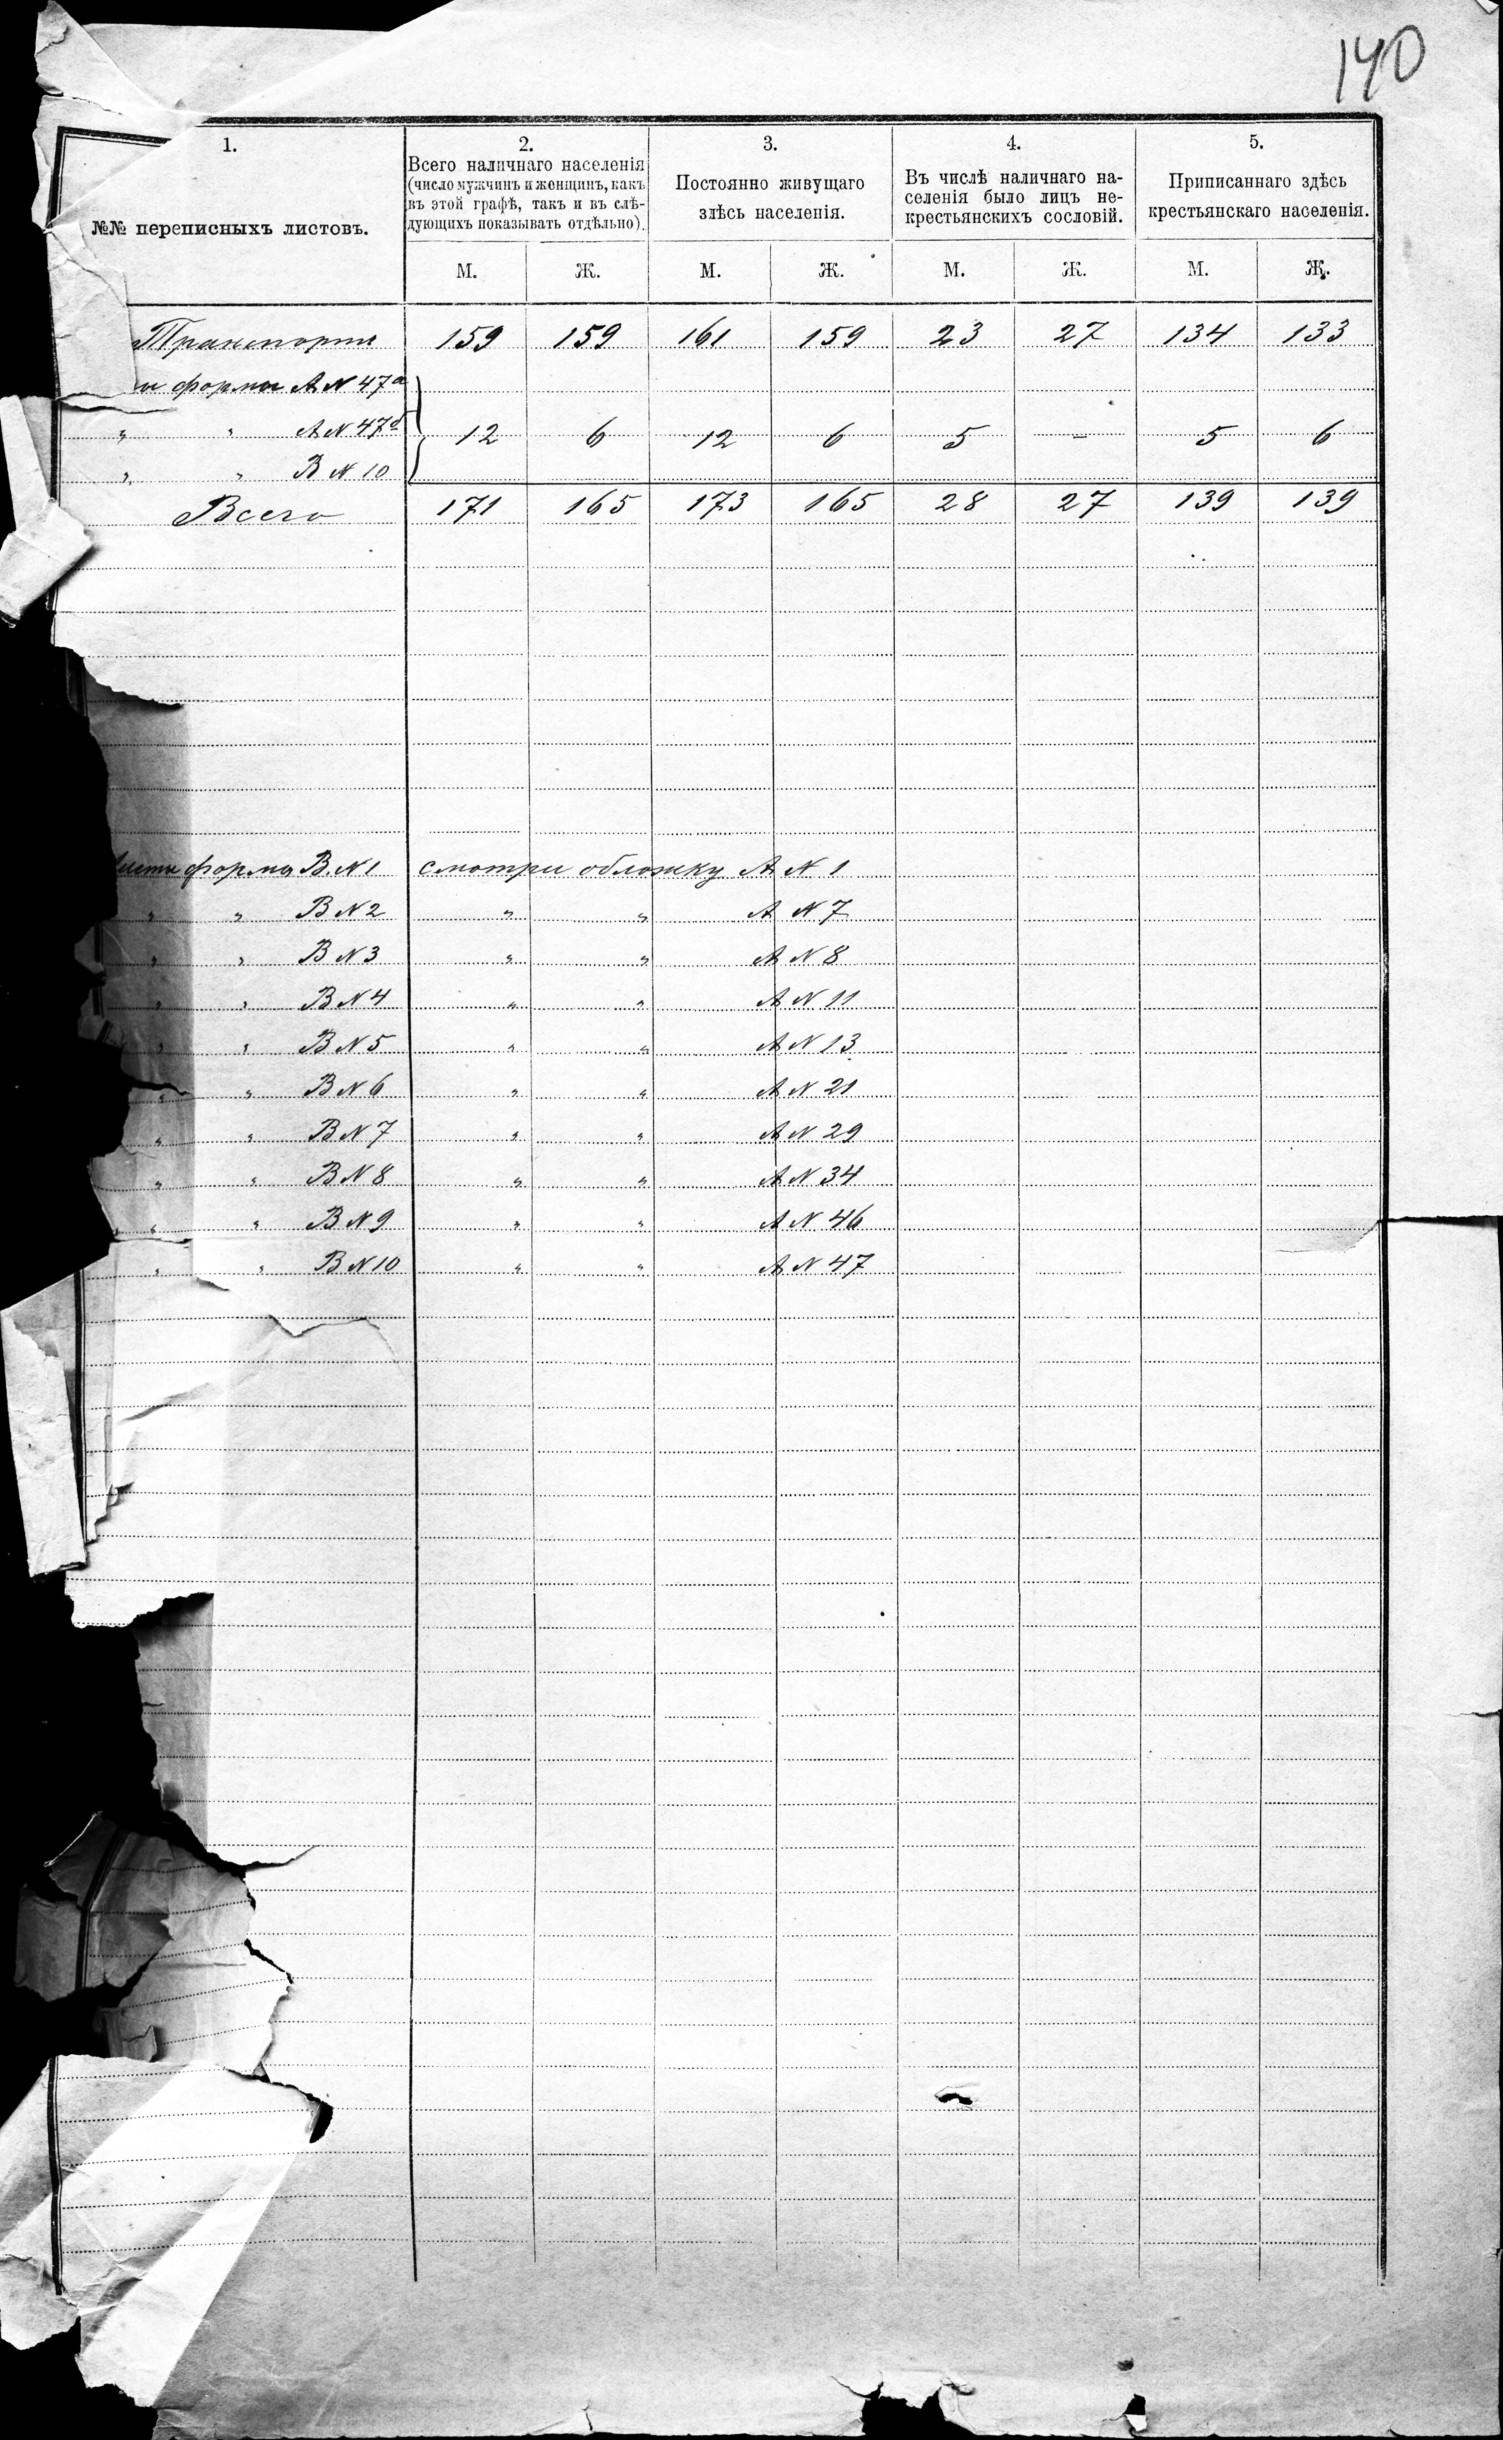 140
1. 2. 3. 4. 5.
№№ переписныхъ листовъ.
Всего наличнаго населенія
(число мужчинъ и женщинъ, какъ
въ этой графѣ, такъ и въ слѣ-
дующихъ показывать отдѣльно).
Постоянно живущаго
здѣсь населенія.
Въ числѣ наличнаго на-
селенія было лицъ не-
крестьянскихъ сословій.
Приписаннаго здѣсь
крестьянскаго населенія.
М. Ж. М. Ж. М. Ж. М. Ж.
Транспортъ 159 159 161 159 23 27 134 133
формы А N 47а
" " А N 47б 12 6 12 6 5 - 5 6
" " В N 10
Всего 171 165 173 165 28 27 139 139
форма В. N 1 смотри обложку А N 1
" " В N 2 " " А N 7
" " В N 3 " " А N 8
" " В N 4 " " А N 11
" " В N 5 " " А N 13
" " В N 6 " " А N 21
" " В N 7 " " А N 29
" " В N 8 " " А N 34
" " В N 9 " " А N 46
" " В N 10 " " А N 47